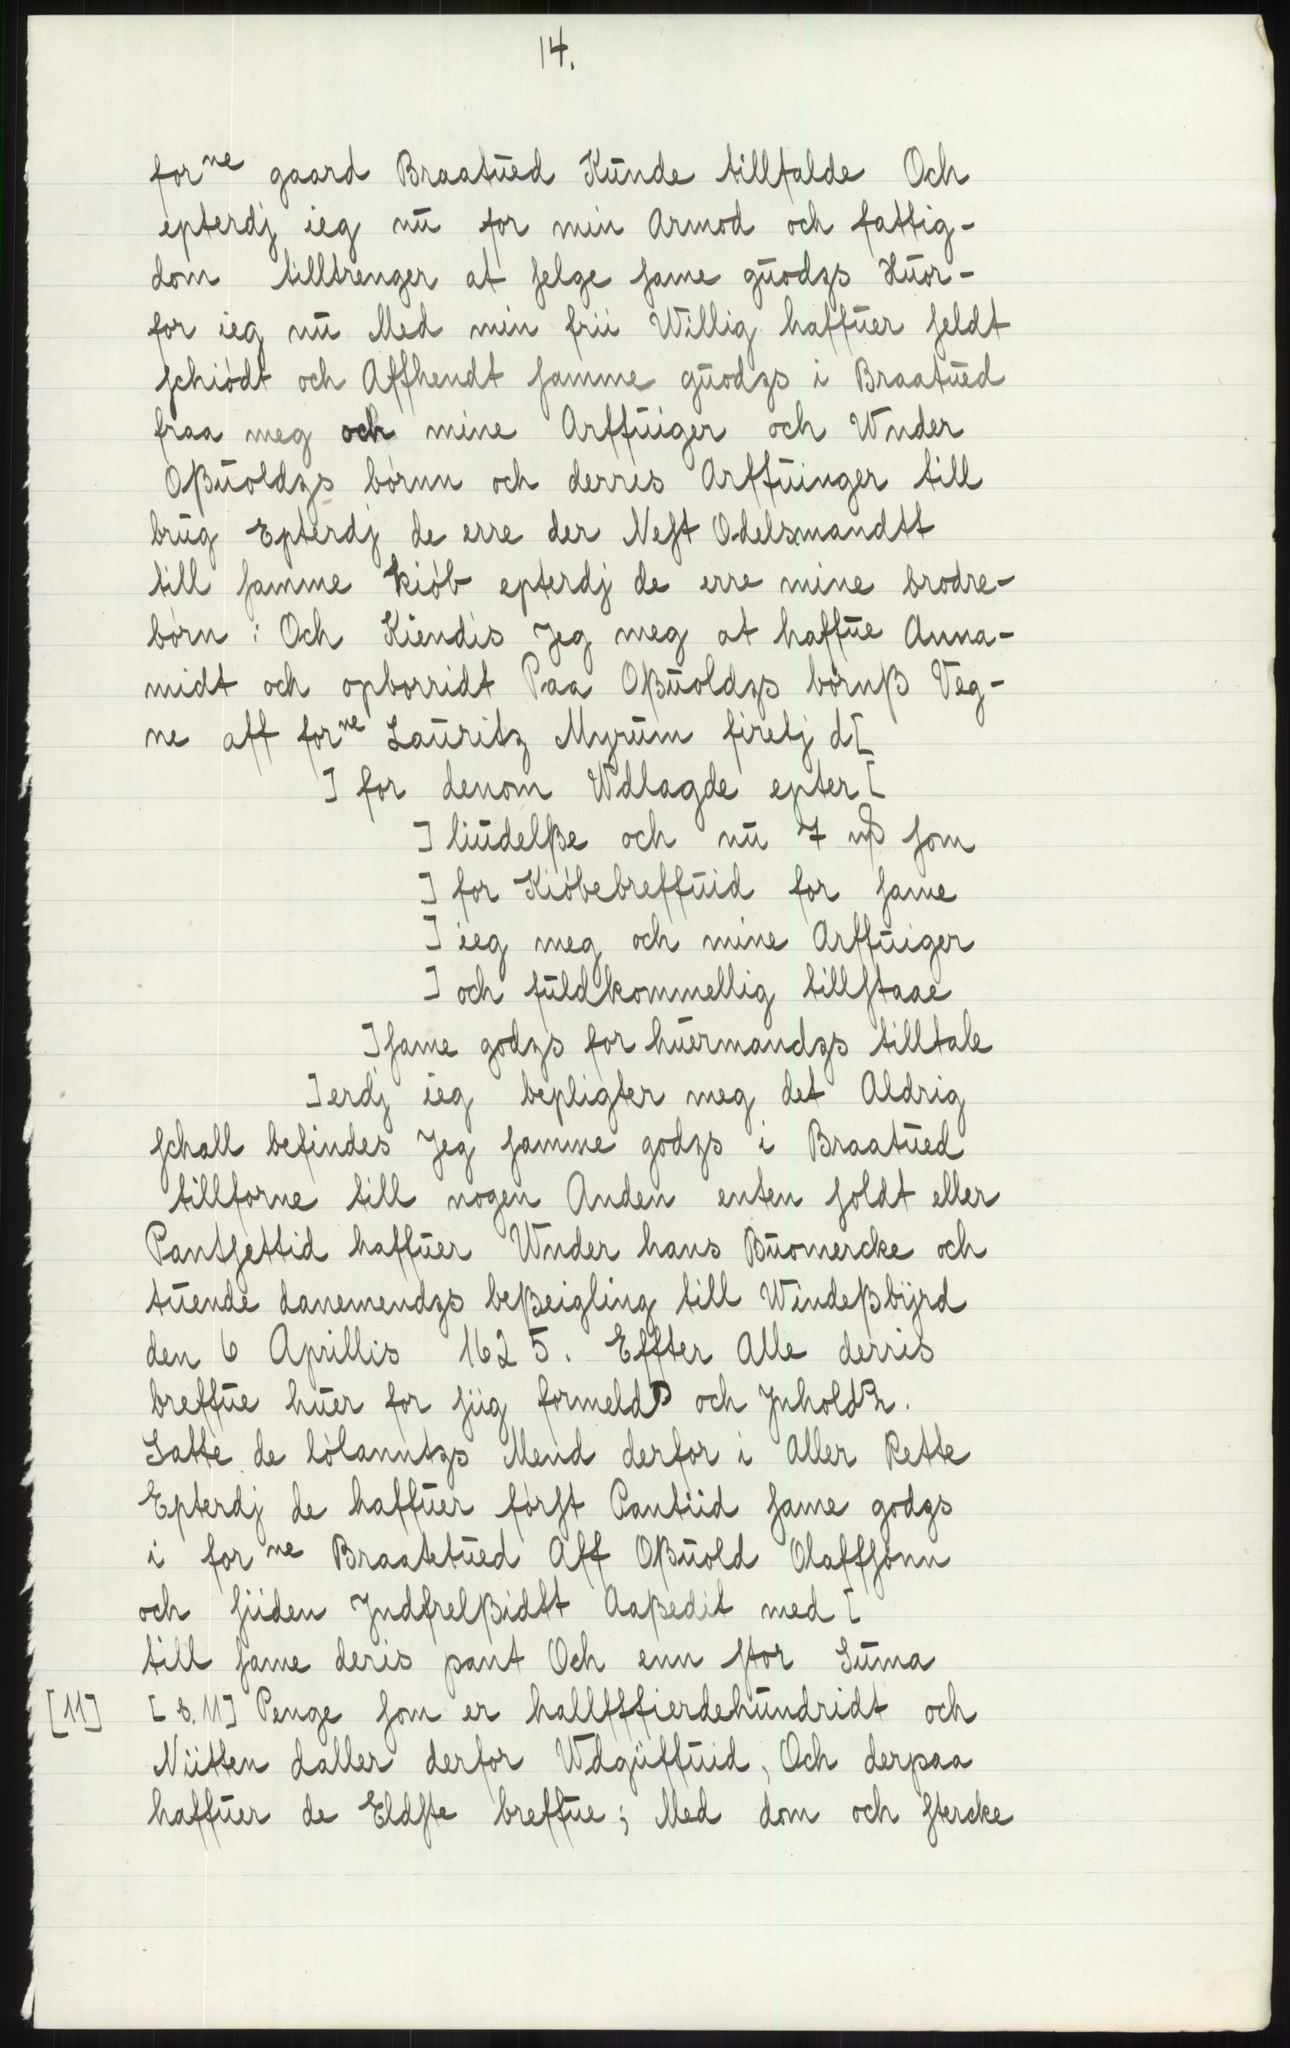 14.
forne gaard Braatued Kunde tillfalde Och
epterdj ieg nu for min Armod och fattig-
dom tilltrenger at selge same guodzs Huor-
for ieg nu Med min frii Willig haffuer seldt
schiødt och Affhendt samme guodzs i Braatued
fraa meg och mine Arffuiger och Wnder
Oßuoldzs børnn och derris Arffuinger till
brug Epterdj de erre der Nest Odelsmandtt
till samme kiøb epterdj de erre mine brodre-
børn : Och Kiendis Jeg meg at haffue Anna-
midt och opborridt Paa Oßuoldzs børnß Veg-
ne aff forne Lauritz Myrum firetj d[
] for denom Wdlagde epter [
] liudelße och nu 7 som
] for Kiøbebreffuid for same
] ieg meg och mine Arffuiger
] och fuldkommellig tillstaae
] same godzs for huermandzs tilltale
] erdj ieg bepligter meg det Aldrig
schall befindes Jeg samme godzs i Braatued
tillforne till nogen Anden enten soldt eller
Pantsettid haffuer Wnder hans Buomercke och
tuende danemendzs beßeigling till Windeßbyrd
den 6 Aprillis 1625. Effter Alle derris
breffue huer for siig formeld och Jnhold.
Satte de lølanntzs Mend derfor i Aller Rette
Epterdj de haffuer først Pantiid same godzs
i forne Braatetued Aff Oßuold Olaffsønn
och siiden Jndfrelßidtt Aaßedit med [
till same deris pant Och enn stor Suma
[11] [s. 11] Penge som er hallfffierdehundridt och
Niitten daller derfor Wdgüffuid, Och derpaa
haffuer de Eldste breffue; Med dom och stercke